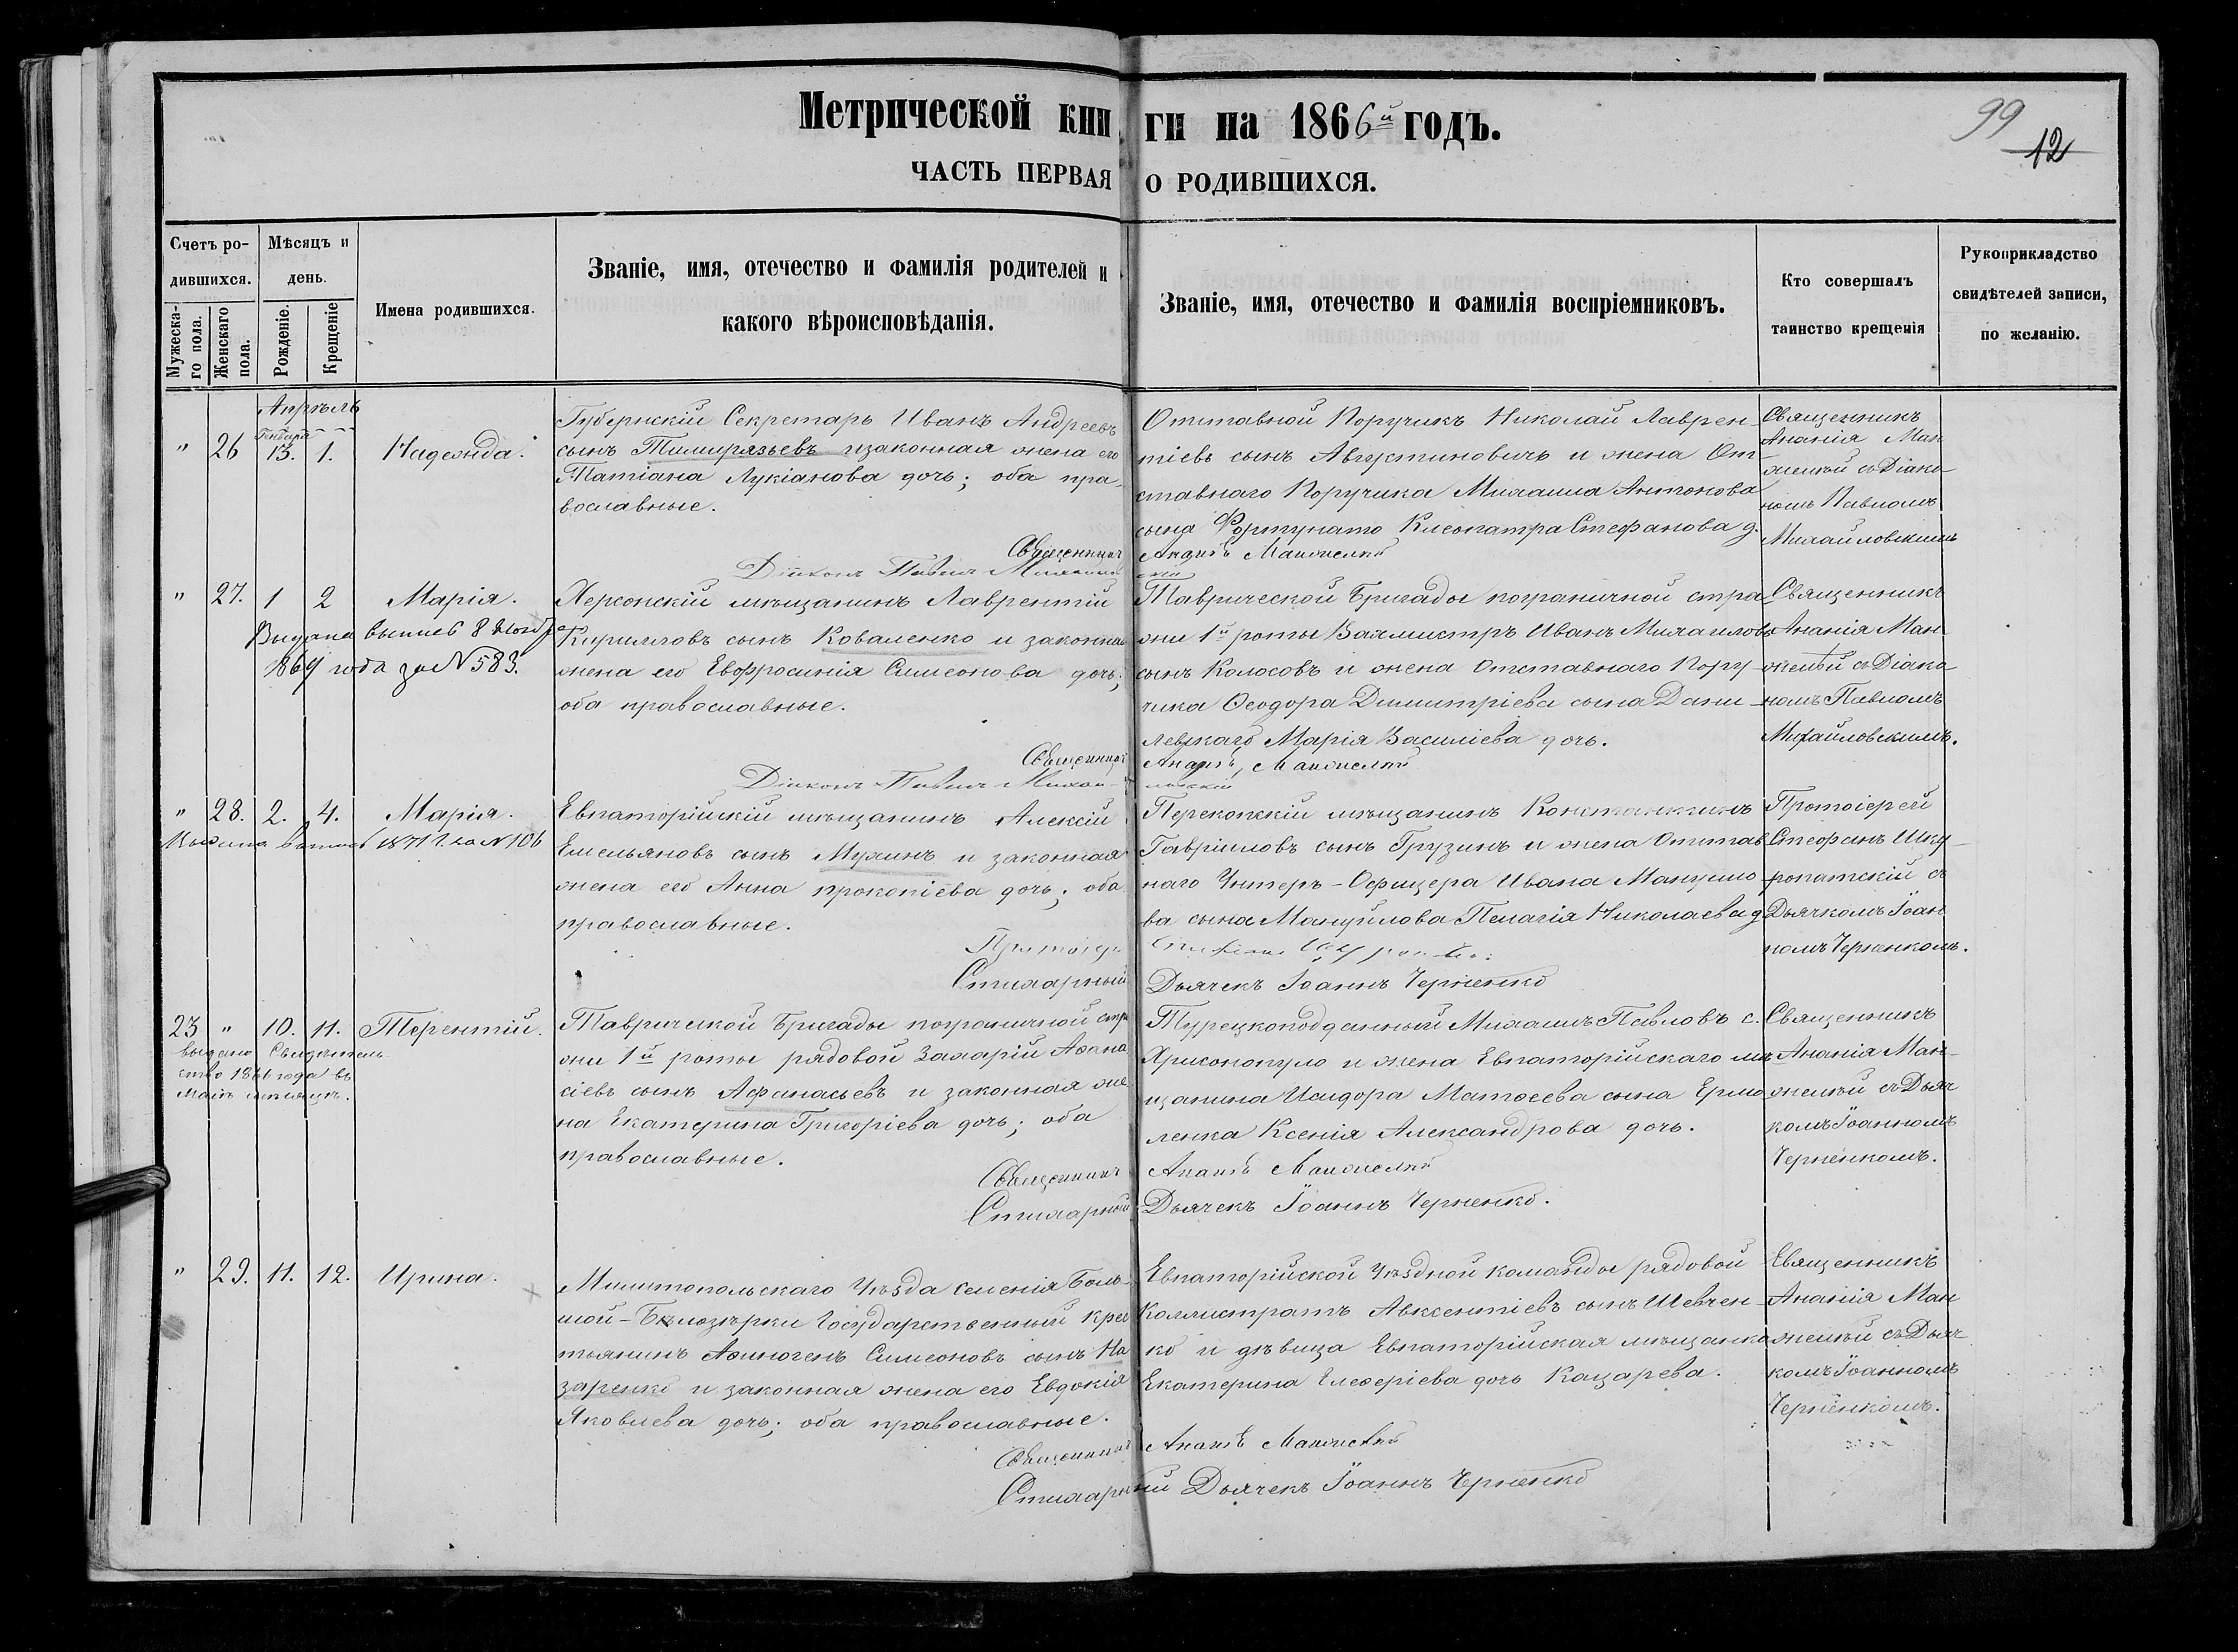 Метрической книги на 1866й годъ.
99
12
ЧАСТЬ ПЕРВАЯ О РОДИВШИХСЯ.
Счетъ ро-
дившихся.
Мужеска-
го пола.
Женскаго
пола.
Мѣсяцъ и
день.
Рожденіе.
Крещеніе
Имена родившихся.
Званіе, имя, отечество и фамилія родителей и
какого вѣроисповѣданія.
Званіе, имя, отечество и фамилія воспріемниковъ.
Кто совершалъ
таинство крещенія
Рукоприкладство
свидѣтелей записи,
по желанію.
Апрѣль
Генваря
" 26 13. 1. Надежда.
Губернскій Секретарь Иванъ Андреевъ
сынъ Тимирязьевъ и законная жена его
Татіана Лукіанова дочь; оба пра-
вославные.
Отставной Поручикъ Николай Лаврен-
тіевъ сынъ Августиновичъ и жена От-
ставнаго Поручика Михаила Антонова
сына Фортунато Клеопатра Стефанова д.
Священникъ
Ананія Ман
желѣй съ Діако-
номъ Павломъ
Михайловскимъ
Священникъ Ананій Манжелѣй
Діаконъ Павелъ Михайловскій
" 27. 1 2 Марія.
Выдана выпись 8 Нояб
1869 года за N 583.
Херсонскій мѣщанинъ Лаврентій
Кирилловъ сынъ Коваленко и законная
жена его Евфросинія Симеонова дочь;
оба православные.
Таврической Бригады пограничной стра
жи 1й роты Вахмистръ Иванъ Михаиловъ
сынъ Колосовъ и жена Отставнаго Пору-
чика Ѳеодора Димитріева сына Дани-
левскаго Марія Василіева дочь.
Священникъ
Ананія Ман-
желѣй съ Діако-
номъ Павломъ
Михайловскимъ.
Священникъ Ананій Манжелѣй
Діаконъ Павелъ Михайловскій
" 28. 2. 4. Марія.
Выдана выпись 1871 г. за N 106
Евпаторійскій мѣщанинъ Алексій
Емельяновъ сынъ Мухинъ и законная
жена его Анна Прокопіева дочь; оба
православные.
Перекопскій мѣщанинъ Константинъ
Гавріиловъ сынъ Грузинъ и жена Отстав
наго Унтеръ-Офицера Ивана Мануило-
ва сына Мануйлова Пелагія Николаева д
Протоіерей
Стефанъ Шку-
ропатскій съ
Дьячкомъ Іоан
номъ Черненкомъ.
Протоіер Стефанъ
Стихарный Дьячекъ Іоаннъ Черненко
23 " 10. 11. Терентій.
выдано Свидѣтель
ство 1866 года въ
Маѣ мѣсяцѣ.
Таврической Бригады пограничной стра
жи 1й роты рядовой Захарій Аѳана
сіевъ сынъ Афанасьевъ и законная же-
на Екатерина Григоріева дочь; оба
православные.
Турецкоподданный Михаилъ Павловъ с.
Хрисонопуло и жена Евпаторійскаго мѣ
щанина Исидора Матѳеева сына Ермо
ленка Ксенія Александрова дочь.
Священникъ
Ананія Ман-
желѣй съ Дьяч
комъ Іоанномъ
Черненкомъ.
Священникъ Ананій Манжелѣй
Стихарный Дьячекъ Іоаннъ Черненко.
" 29. 11. 12. Ирина.
Мелитопольскаго Уѣзда селенія Боль-
шой-Бѣлозѣрки Государственный Крес
тьянинъ Аѳиногенъ Симеоновъ сынъ На
заренко и законная жена его Евдокія
Яковлева дочь; оба православные.
Евпаторійской Уѣздной команды рядовой
Каллистратъ Авксентіевъ сынъ Шевчен-
ко и дѣвица Евпаторійская мѣщанка
Екатерина Елеѳеріева дочь Кацарева.
Священникъ
Ананія Ман
желѣй съ Дьяч-
комъ Іоанномъ
Черненкомъ.
Священникъ Ананій Манжелѣй
Стихарный Дьячекъ Іоаннъ Черненко